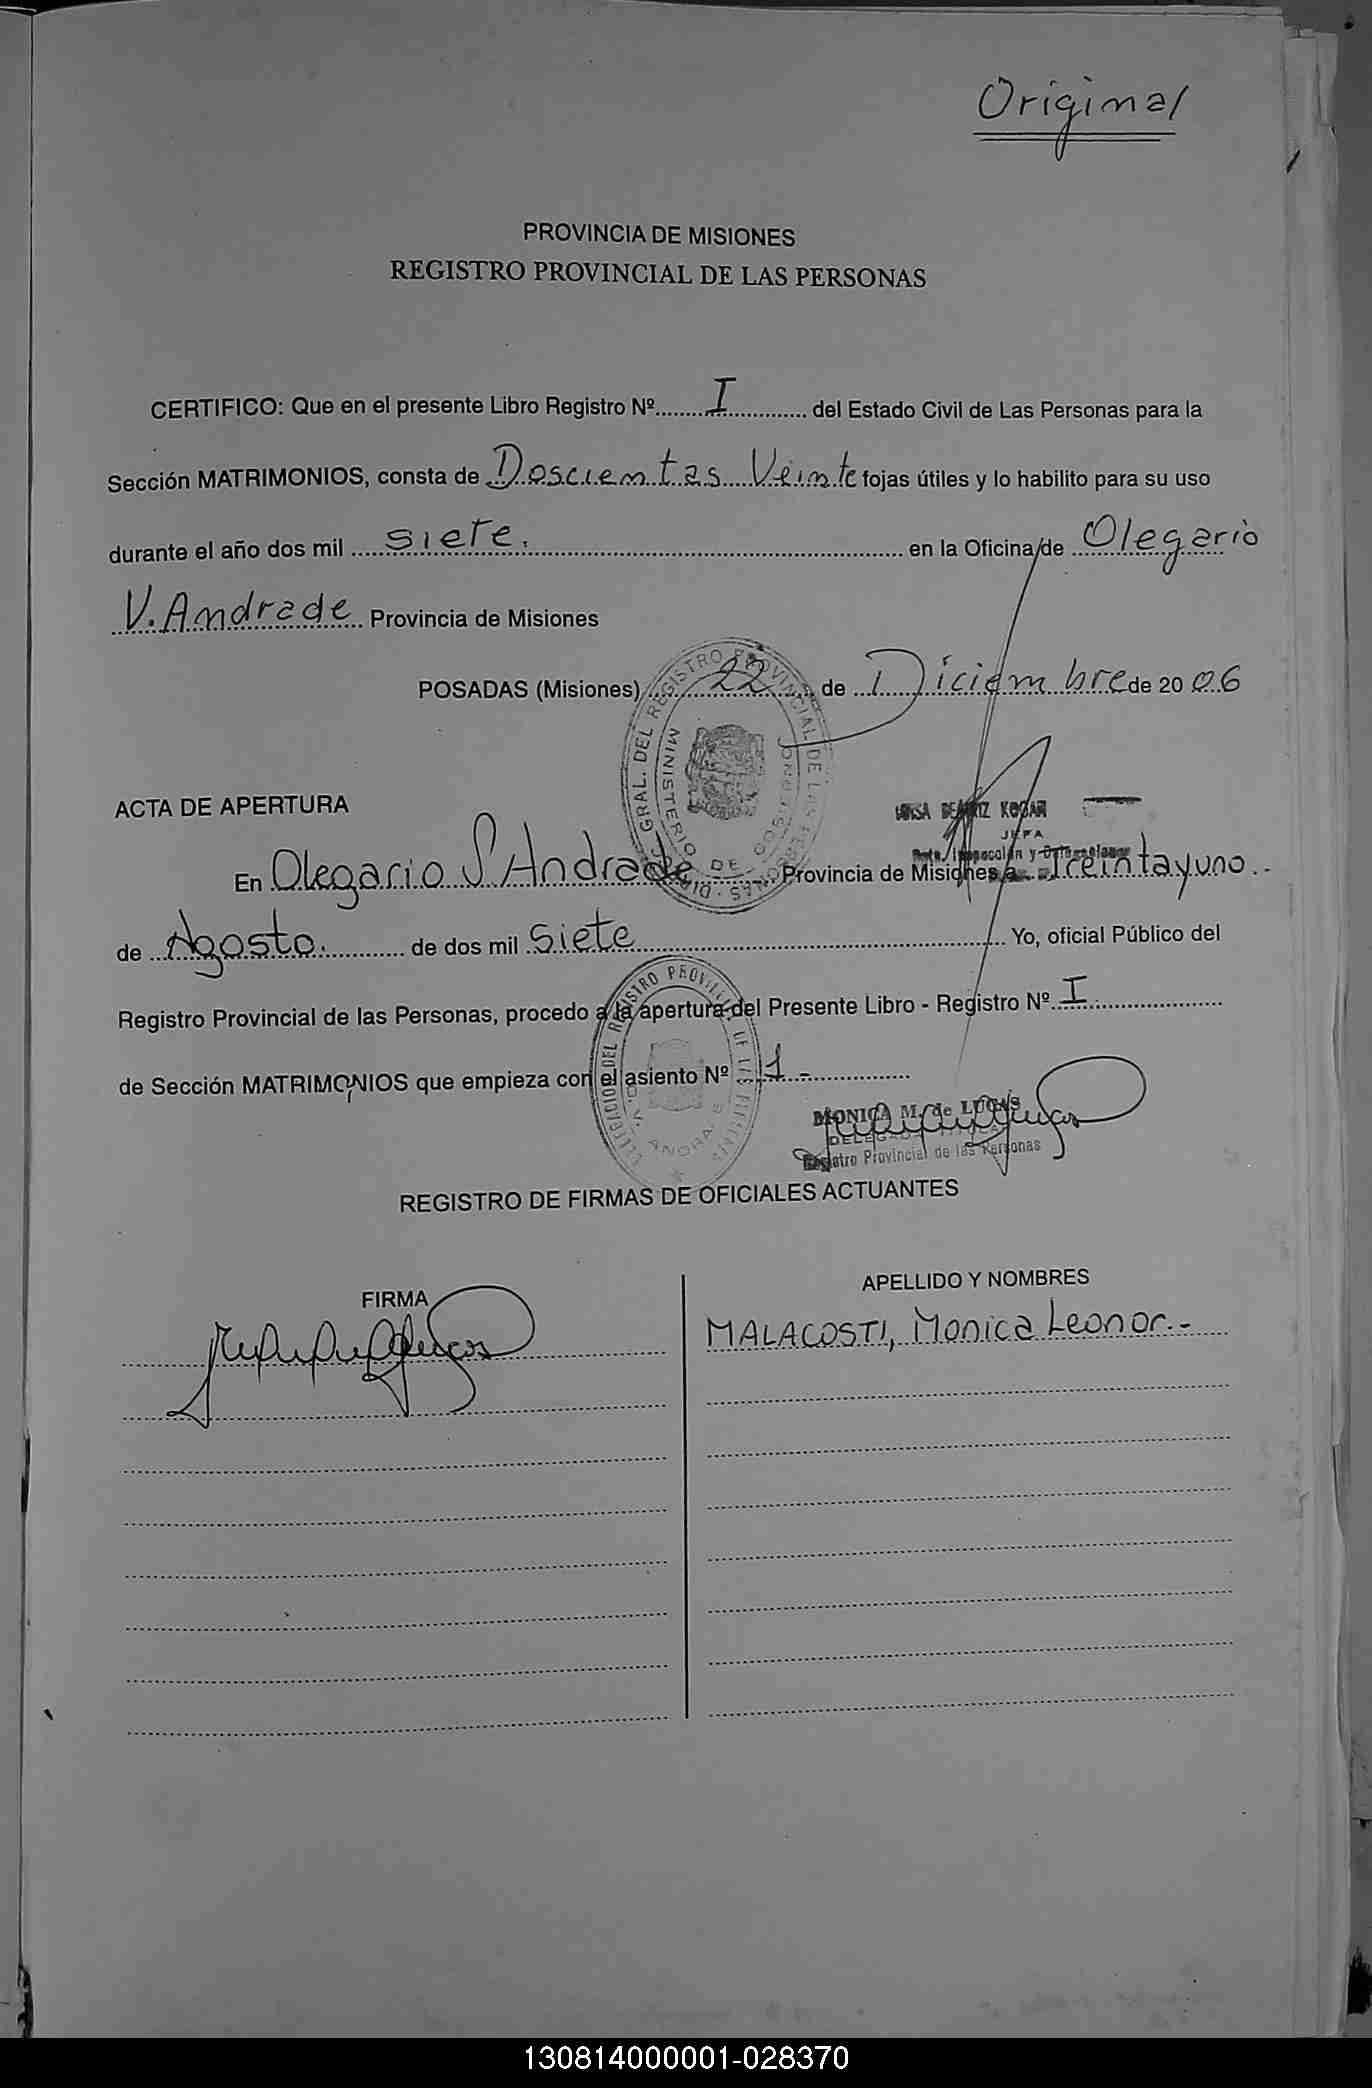 Original
PROVINCIA DE MISIONES
REGISTRO PROVINCIAL DE LAS PERSONAS
CERTIFICO: Que en el presente Libro Registro Nº I del Estado Civil de Las Personas para la
Sección MATRIMONIOS, consta de Doscientas Veinte fojas útiles y lo habilito para su uso
durante el año dos mil siete. en la Oficina de Olegario
V. Andrade Provincia de Misiones
POSADAS (Misiones) 22 de Diciembre de 2006
KOGAN
JEFA
ACTA DE APERTURA
En Olegario Andrade Provincia de Misiones a Treintayuno.-
de Agosto. de dos mil Siete Yo, oficial Público del
Registro Provincial de las Personas, procedo a la apertura del Presente Libro - Registro Nº I
de Sección MATRIMONIOS que empieza con el asiento Nº 1.-
MONICA M. de LUCAS
DELEGADA TITULAR
Registro Provincial de las Personas
REGISTRO DE FIRMAS DE OFICIALES ACTUANTES
FIRMA
APELLIDO Y NOMBRES
MALACOSTI, Monica Leonor.-
130814000001-028370